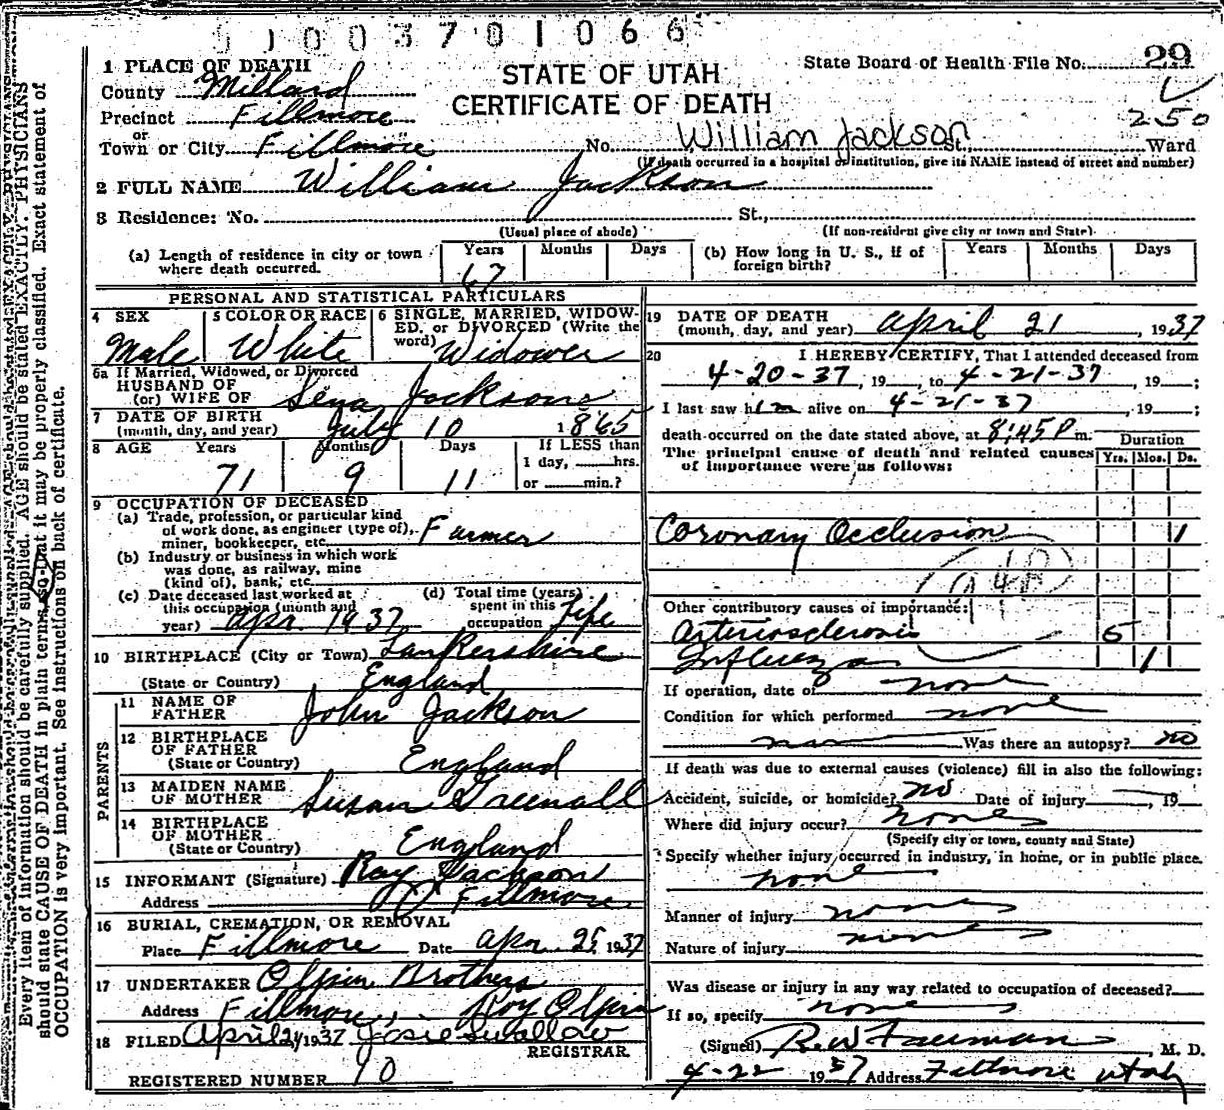 1003701066
1 PLACE OF DEATH
STATE OF UTAH
CERTIFICATE OF DEATH
State Board of Health File No. 29
2.50
County Millard
Precinct Fillmore
or
Town or City Fillmore No. William Jackson St., Ward
(If death occurred in a hospital or institution, give its NAME instead of street and number)
2 FULL NAME William Jackson
3 Residence: No. St.,
(Usual place of abode) (If non-resident give city or town and State)
(a) Length of residence in city or town where death occurred. Years 67 Months Days
(b) How long in U. S., if of foreign birth? Years Months Days
PERSONAL AND STATISTICAL PARTICULARS
4 SEX Male
5 COLOR OR RACE White
6 SINGLE, MARRIED, WIDOWED, or DIVORCED (Write the word) Widower
6a If Married, Widowed, or Divorced
HUSBAND OF
(or) WIFE OF Sena Jackson
7 DATE OF BIRTH
(month, day, and year) July 10 1865
8 AGE Years 71 Months 9 Days 11
If LESS than
1 day, hrs.
or min.?
9 OCCUPATION OF DECEASED
(a) Trade, profession, or particular kind
of work done, as engineer (type of),
miner, bookkeeper, etc. Farmer
(b) Industry or business in which work
was done, as railway, mine
(kind of), bank, etc.
(c) Date deceased last worked at
this occupation (month and
year) Apr. 1937
(d) Total time (years)
spent in this
occupation Life
10 BIRTHPLACE (City or Town) Lankershire
(State or Country) England
PARENTS
11 NAME OF
FATHER John Jackson
12 BIRTHPLACE
OF FATHER
(State or Country) England
13 MAIDEN NAME
OF MOTHER Susan Greenall
14 BIRTHPLACE
OF MOTHER
(State or Country) England
15 INFORMANT (Signature) Ray Jackson
Address Fillmore
16 BURIAL, CREMATION, OR REMOVAL
Place Fillmore Date Apr 25, 1937
17 UNDERTAKER Olpin Brothers
Address Fillmore, Roy Olpin
18 FILED April 24 1937 Josie Swallow
REGISTRAR
REGISTERED NUMBER 10
19 DATE OF DEATH
(month, day, and year) April 21 1937
20 I HEREBY CERTIFY, That I attended deceased from
4-20-37, 19, to 4-21-37, 19;
I last saw him alive on 4-21-37, 19;
death occurred on the date stated above, at 8:45 P m.
The principal cause of death and related causes
of importance were as follows:
Duration
Yrs. Mos. Ds.
Coronary Occlusion 1
94B
Other contributory causes of importance:
Arteriosclerosis 5
Influenza 1
If operation, date of none
Condition for which performed none
Was there an autopsy? no
If death was due to external causes (violence) fill in also the following:
Accident, suicide, or homicide? no Date of injury 19
Where did injury occur? none
(Specify city or town, county and State)
Specify whether injury occurred in industry, in home, or in public place.
none
Manner of injury none
Nature of injury none
Was disease or injury in any way related to occupation of deceased?
If so, specify none
(Signed) M. D.
4-22 1937 Address Fillmore Utah
Every item of information should be carefully supplied. AGE should be stated EXACTLY. PHYSICIANS
should state CAUSE OF DEATH in plain terms, so that it may be properly classified. Exact statement of
OCCUPATION is very important. See instructions on back of certificate.